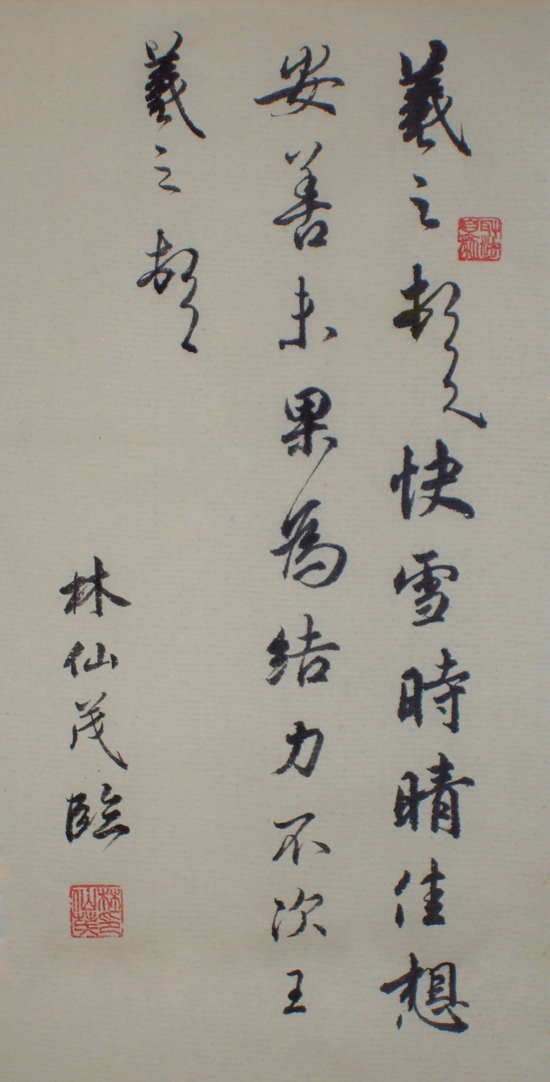 羲之頓首快雪時晴佳想
安善未果為結力不次王
羲之頓首
林仙茂臨
林仙茂印